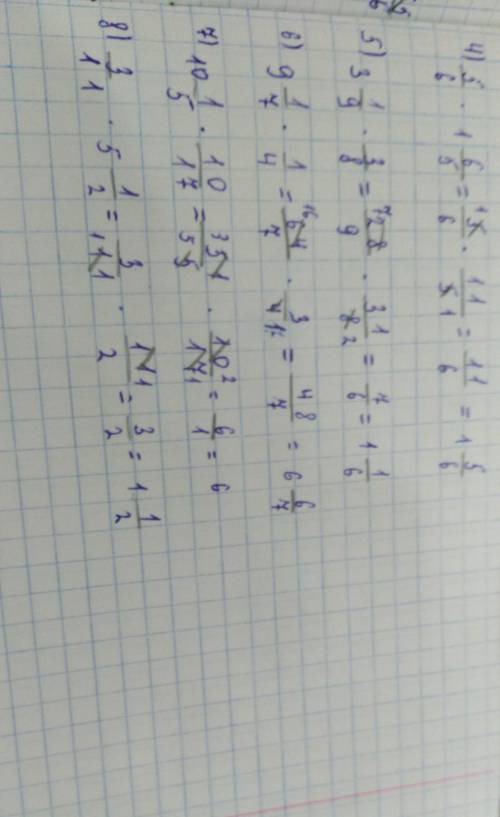 4) 5/6 · 1 6/5 = 5 1/6 · 11/5 1 = 11/6 = 1 5/6
5) 3 1/9 · 3/8 = 28 7/9 · 3 1/8 2 = 7/6 = 1 1/6
6) 9 1/7 · 1/4 = 64 16/7 · 3/4 1 = 48/7 = 6 6/7
7) 10 1/5 · 10/17 = 51 3/5 · 10 2/17 1 = 6/1 = 6
8) 3/11 · 5 1/2 = 3/11 1 · 11 1/2 = 3/2 = 1 1/2